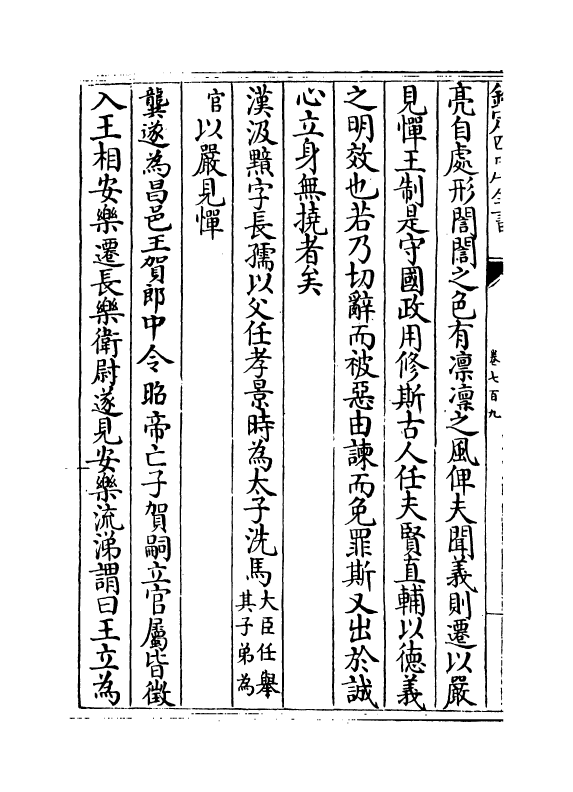 欽定四庫全書
卷七百九
亮自處形誾誾之色有凛凛之風俾夫聞義則遷以嚴
見憚王制是守國政用修斯古人任夫賢直輔以徳義
之明效也若乃切辭而被惡由諫而免罪斯又出於誠
心立身無撓者矣
漢汲黯字長孺以父任孝景時為太子洗馬大臣任舉其子弟為
官以嚴見憚
龔遂為昌邑王賀郎中令昭帝亡子賀嗣立官屬皆徵
入王相安樂遷長樂衛尉遂見安樂流涕謂曰王立為